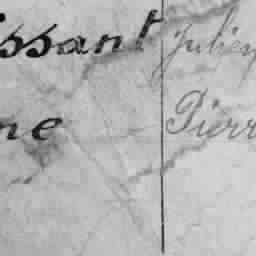 issant Julien
ne Pierr